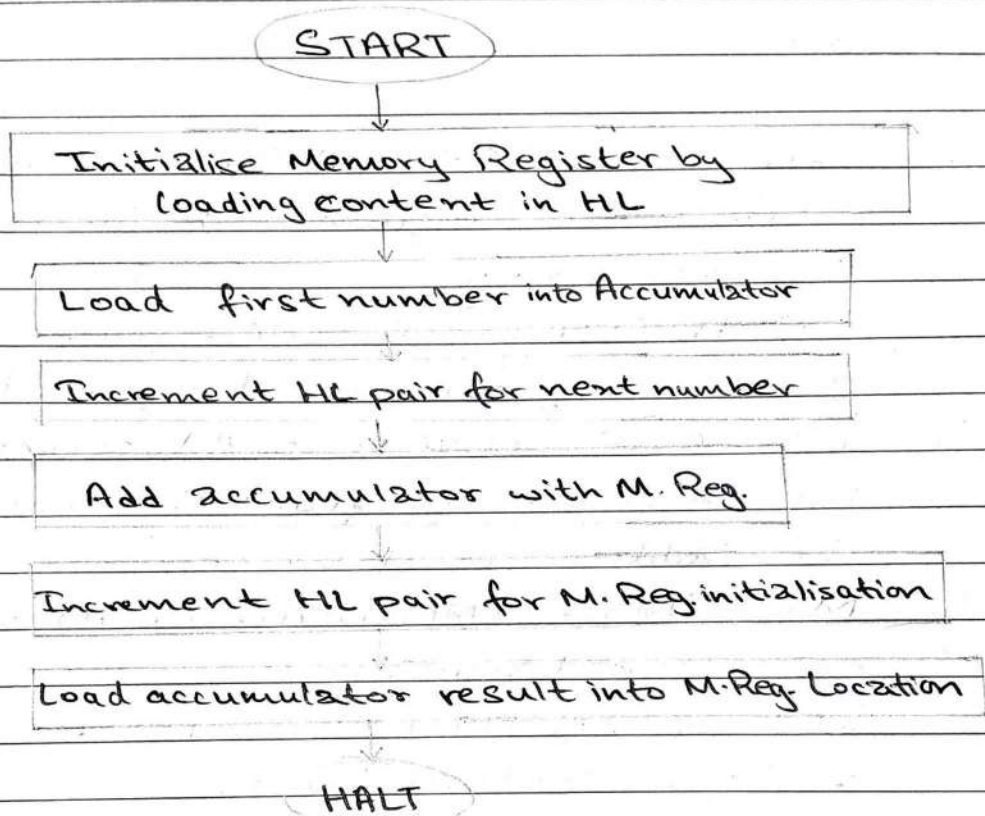 START
Initialise Memory Register by
loading content in HL
Load first number into Accumulator
Increment HL pair for next number
Add accumulator with M. Reg.
Increment HL pair for M. Reg. initialisation
Load accumulator result into M. Reg. Location
HALT